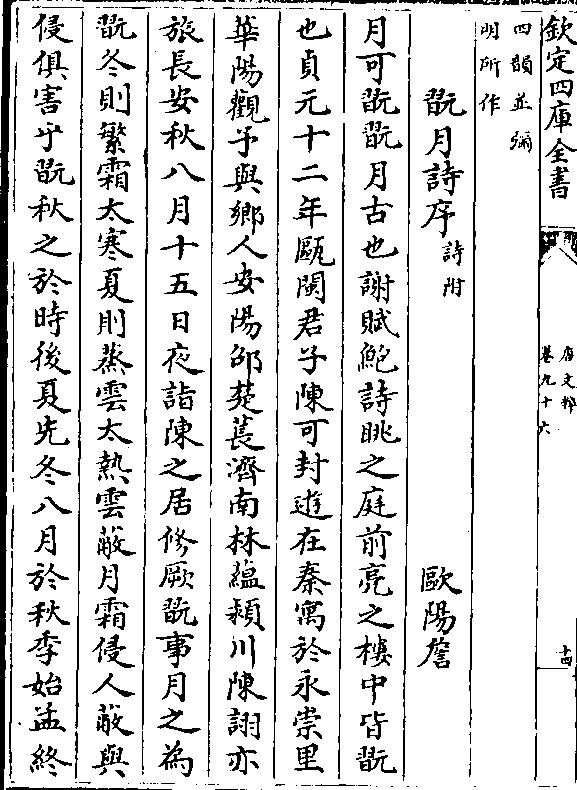 欽定四庫全書
唐文粹
卷九十六
十四
四韻並彌
明所作
翫月詩序詩附
歐陽詹
月可翫翫月古也謝賦鮑詩眺之庭前亮之樓中皆翫
也貞元十二年甌閩君子陳可封遊在秦寓於永崇里
華陽觀予與鄉人安陽邵楚萇濟南林蘊潁川陳詡亦
旅長安秋八月十五日夜詣陳之居修厥翫事月之為
翫冬則繁霜太寒夏則蒸雲太熱雲蔽月霜侵人蔽與
侵俱害乎翫秋之於時後夏先冬八月於秋季始孟終